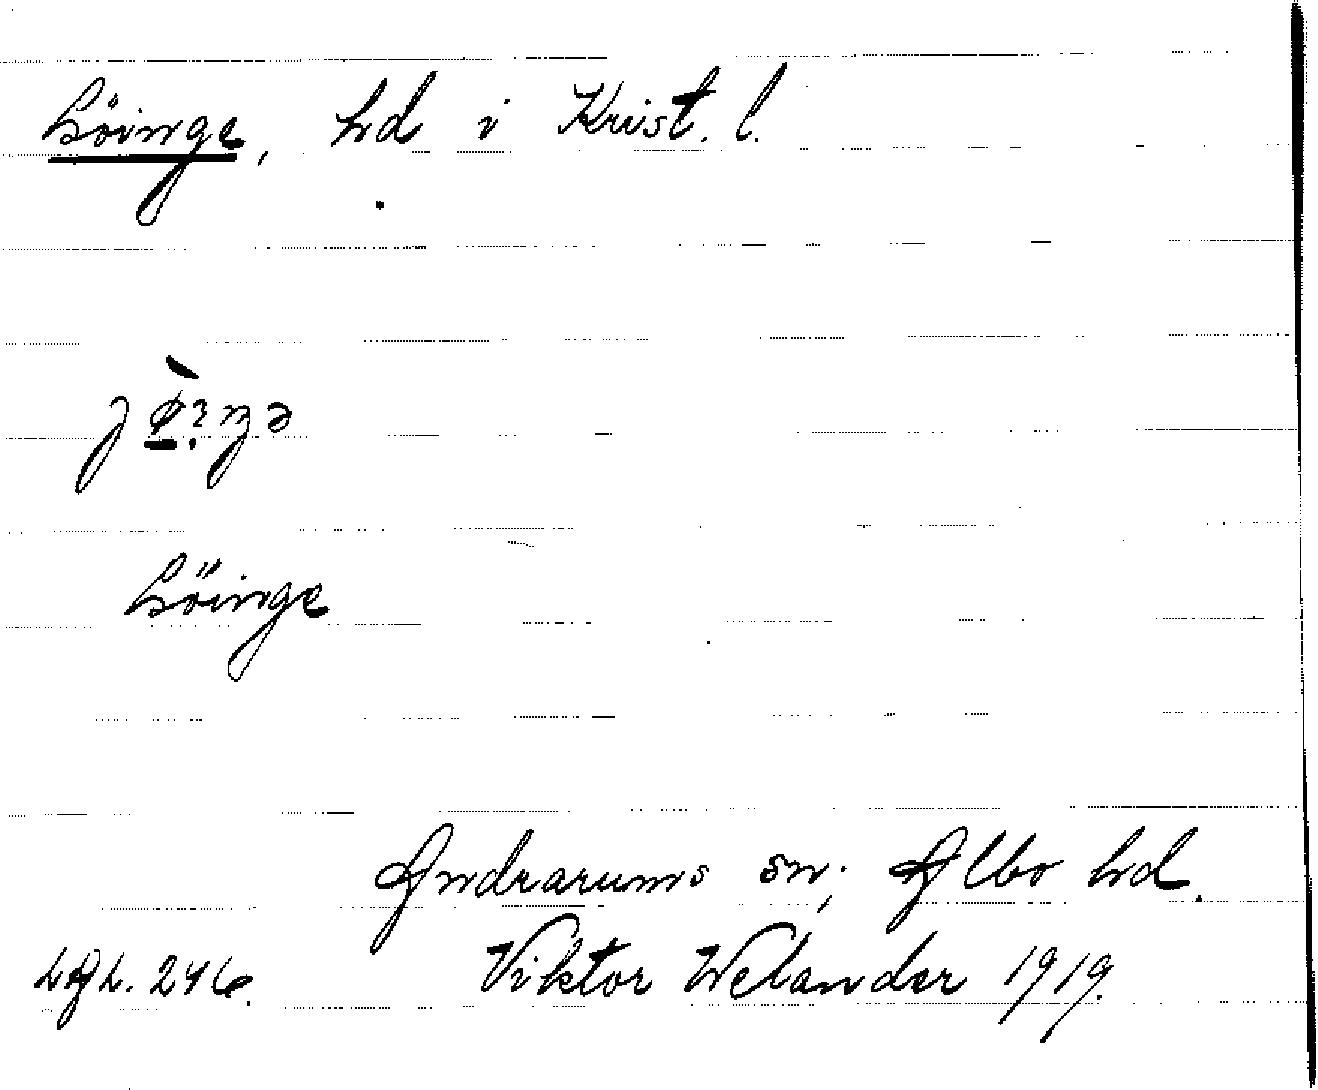 Göinge, hd i Krist. l.
Göinge
Andrarums sn; Albo hd.
LAL. 246. Viktor Welander 1919.